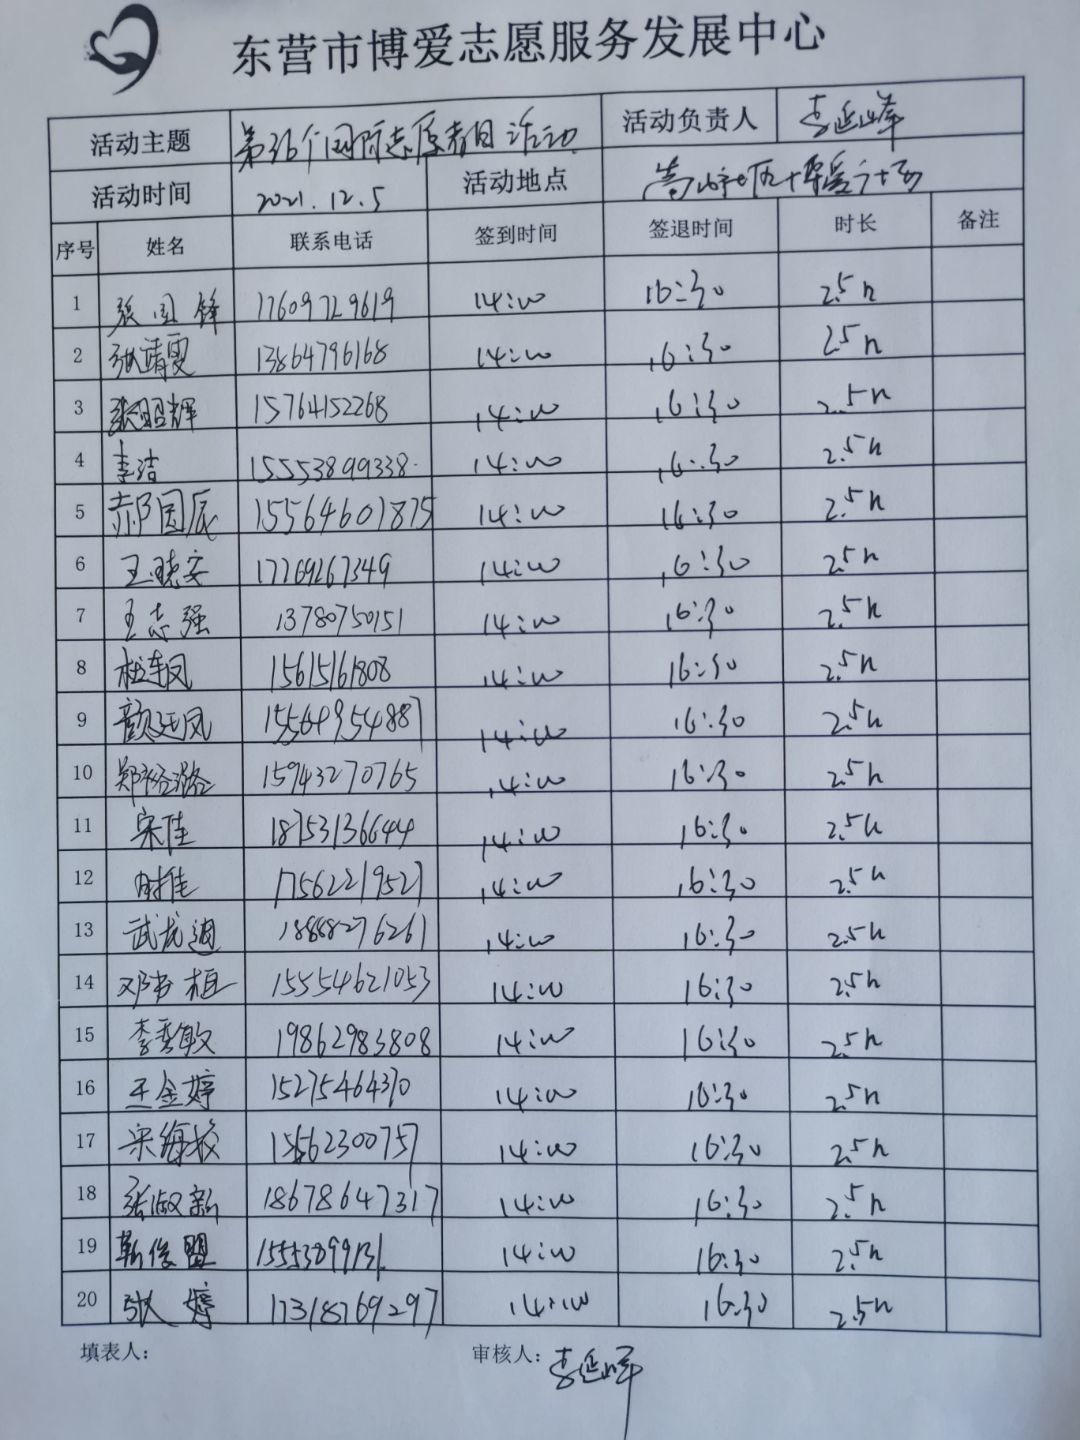 东营市博爱志愿服务发展中心
活动主题 第36个国际志愿者日活动 活动负责人 李延峰
活动时间 2021.12.5 活动地点
序号 姓名 联系电话 签到时间 签退时间 时长 备注
1 张国锋 17609729619 14:00 16:30 2.5h
2 张靖雯 13864796168 14:00 16:30 2.5h
3 张昭辉 15764152268 14:00 16:30 2.5h
4 李洁 15553899338 14:00 16:30 2.5h
5 郝国辰 15564601875 14:00 16:30 2.5h
6 王晓安 17269267349 14:00 16:30 2.5h
7 王志强 13780750151 14:00 16:30 2.5h
8 杜连凤 15615161808 14:00 16:30 2.5h
9 颜廷凤 15564954887 14:00 16:30 2.5h
10 15943270765 14:00 16:30 2.5h
11 宋佳 18753136644 14:00 16:30 2.5h
12 时佳 17562219527 14:00 16:30 2.5h
13 武龙迪 18888276261 14:00 16:30 2.5h
14 邓书桓 15554621053 14:00 16:30 2.5h
15 李秀敏 19862983808 14:00 16:30 2.5h
16 王金婷 14:00 16:30 2.5h
17 宋海校 15562300757 14:00 16:30 2.5h
18 张淑新 18678647317 14:00 16:30 2.5h
19 靳俊盟 15553899131 14:00 16:30 2.5h
20 张婷 17318769297 14:00 16:30 2.5h
填表人: 审核人: 李延峰